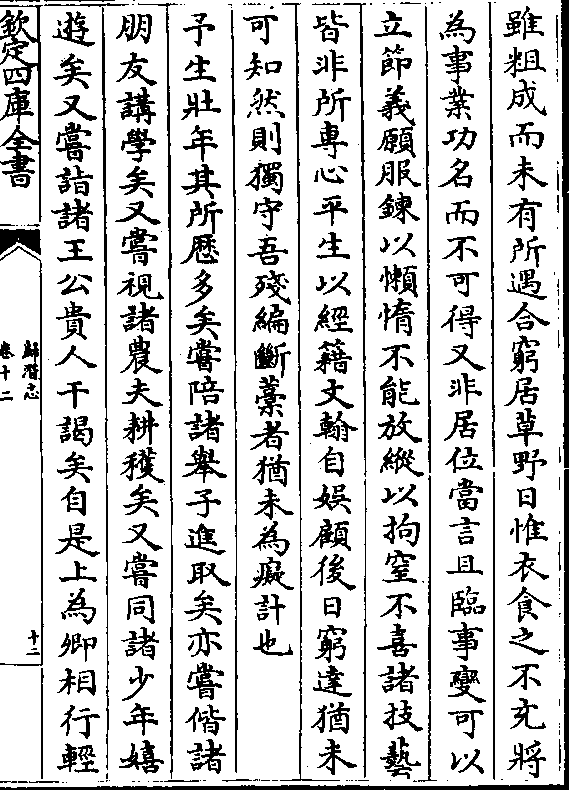 雖粗成而未有所遇合窮居草野日惟衣食之不充將
為事業功名而不可得又非居位當言且臨事變可以
立節義願服鍊以懶惰不能放縱以拘窒不喜諸技藝
皆非所專心平生以經籍文翰自娛顧後日窮達猶未
可知然則獨守吾殘編斷藁者猶未為癡計也
予生壯年其所歴多矣嘗陪諸舉子進取矣亦嘗偕諸
朋友講學矣又嘗視諸農夫耕穫矣又嘗同諸少年嬉
遊矣又嘗詣諸王公貴人干謁矣自是上為卿相行輕
欽定四庫全書
歸潛志
卷十二
十二